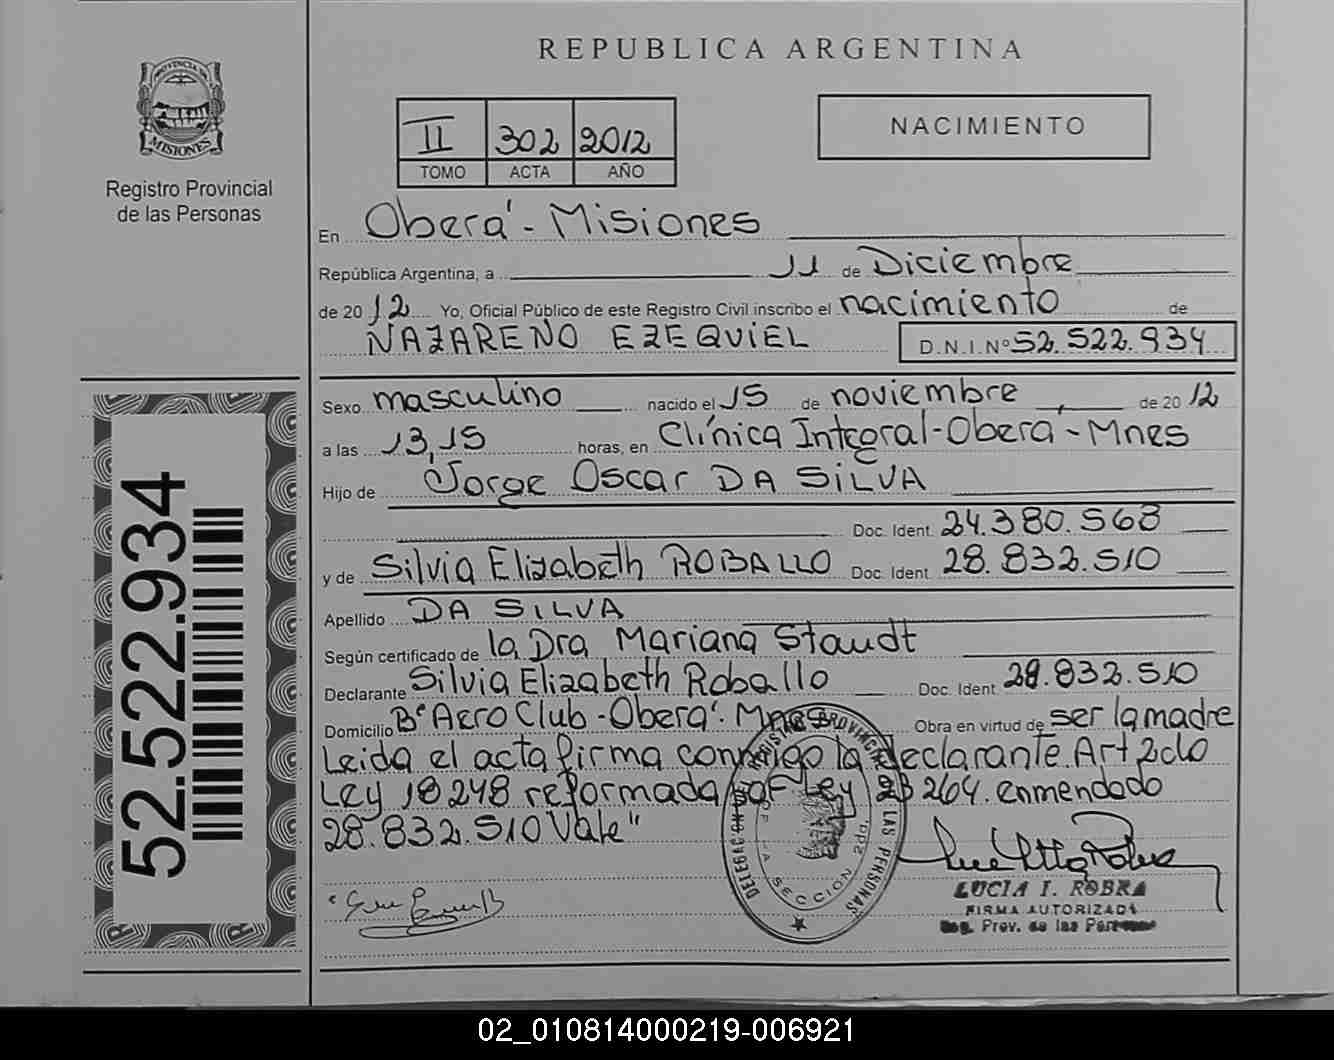 REPUBLICA ARGENTINA
PROVINCIA DE
MISIONES
Registro Provincial
de las Personas
II 302 2012
TOMO ACTA AÑO
NACIMIENTO
En Oberá - Misiones
República Argentina, a 11 de Diciembre
de 2012 Yo, Oficial Público de este Registro Civil inscribo el nacimiento de
NAZARENO EZEQUIEL D.N.I.Nº 52.522.934
Sexo masculino nacido el 15 de noviembre de 2012
a las 13,15 horas, en Clínica Integral-Oberá-Mnes
Hijo de Jorge Oscar DA SILVA
Doc. Ident. 24.380.568
y de Silvia Elizabeth ROBALLO Doc. Ident. 28.832.510
Apellido DA SILVA
Según certificado de la Dra Mariana Staudt
Declarante Silvia Elizabeth Roballo Doc. Ident. 28.832.510
Domicilio Bº Aero Club-Oberá. Mnes Obra en virtud de ser la madre
Leida el acta firma conmigo la declarante. Art 2do
Ley 18248 reformada por Ley 23264. enmendado
28.832.510 Vale"
52.522.934
DELEGACION REGISTRO PROVINCIAL DE LAS PERSONAS
SECCION 2da.
LUCIA I. ROBRA
FIRMA AUTORIZADA
Reg. Prov. de las Personas
02_010814000219-006921